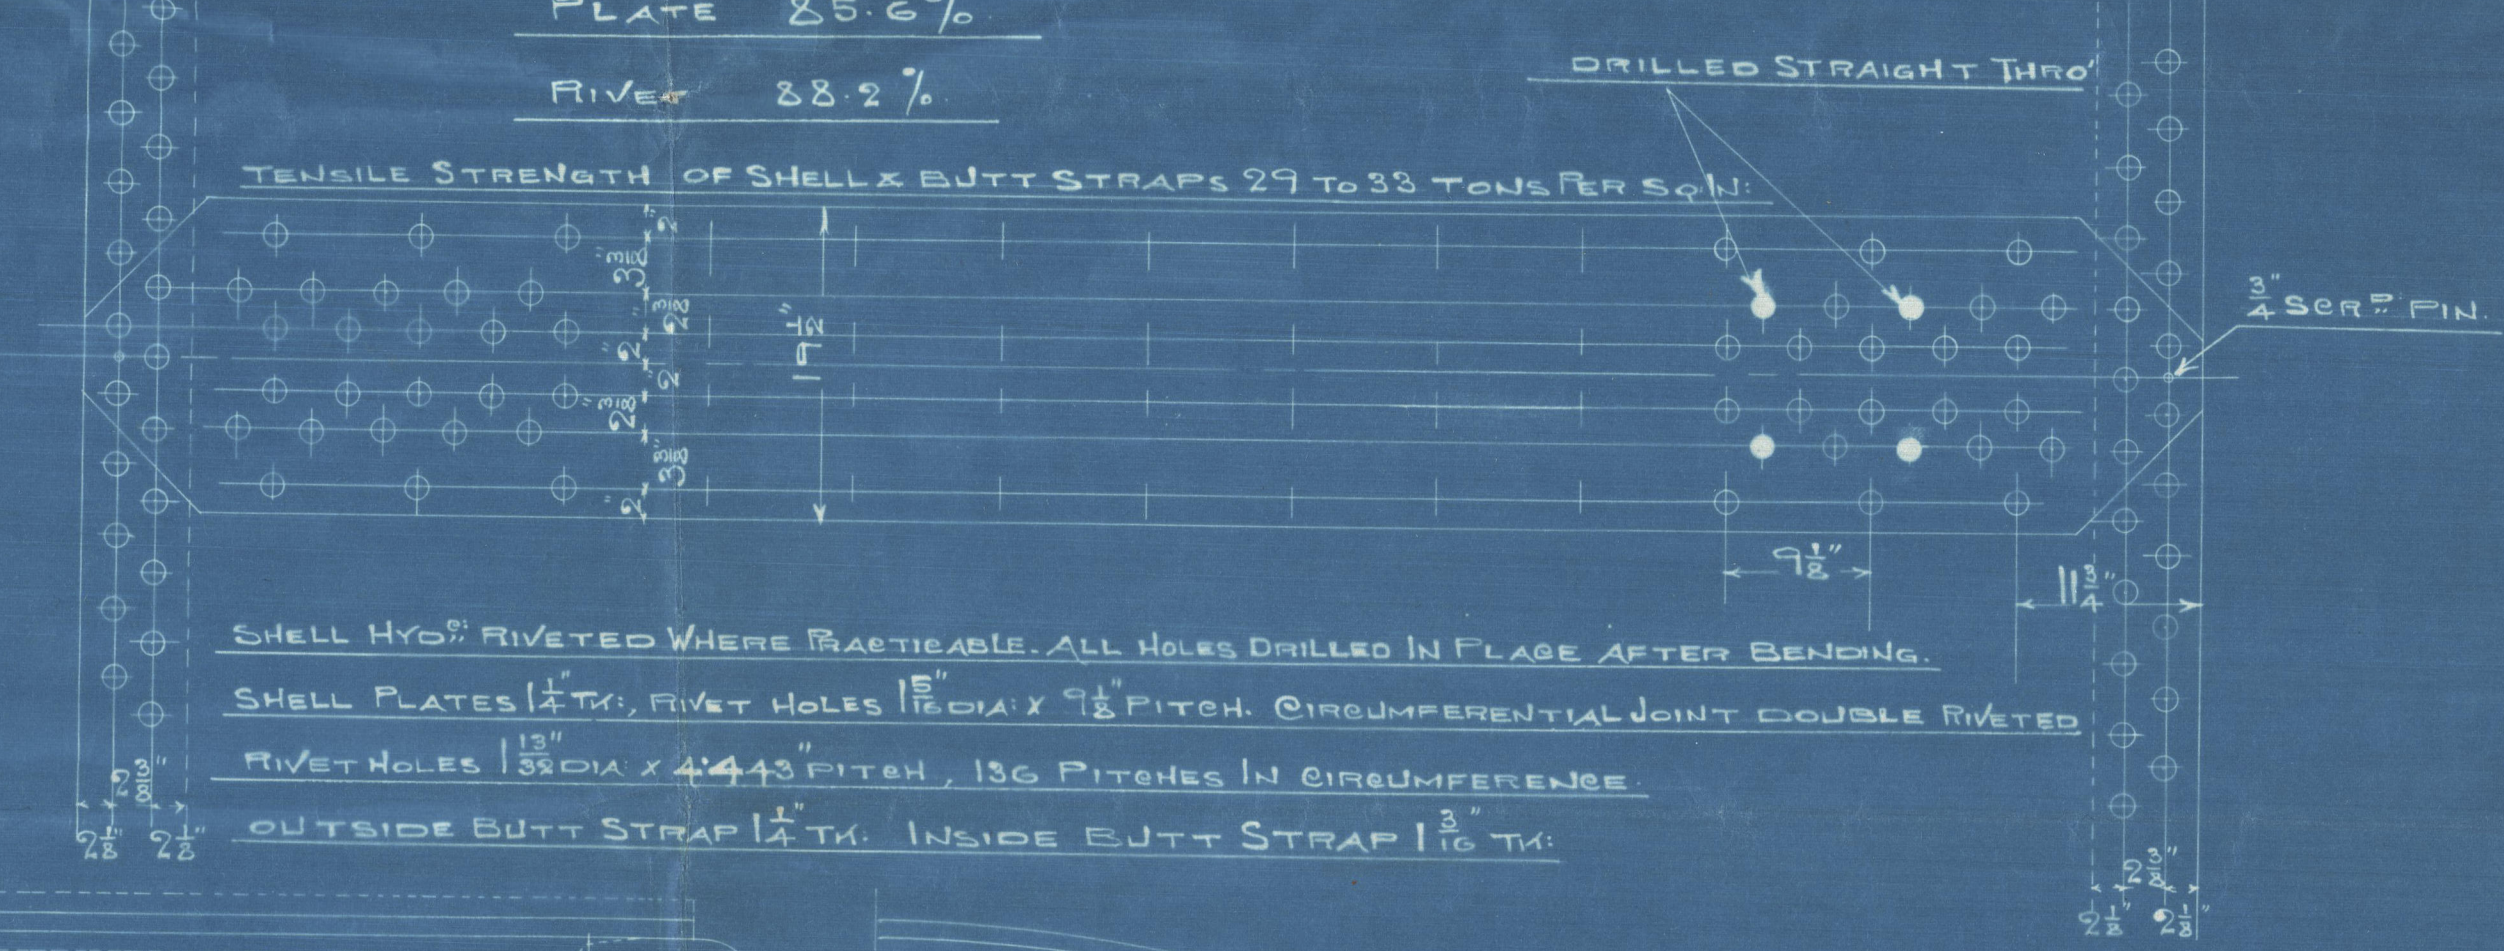 PLATE 85.6%
RIVET 88.2%
DRILLED STRAIGHT THRO'
TENSILE STRENGTH OF SHELL & BUTT STRAPS 29 TO 33 TONS PER SQ. IN:
2"
3 3/8"
2 3/8"
2"
2"
2 3/8"
3 3/8"
2"
19 1/2"
3/4" SCRD. PIN.
9 1/8"
11 3/4"
SHELL HYDC: RIVETED WHERE PRACTICABLE. ALL HOLES DRILLED IN PLACE AFTER BENDING.
SHELL PLATES 1 1/4" TK:, RIVET HOLES 1 5/16" DIA: X 9 1/8" PITCH. CIRCUMFERENTIAL JOINT DOUBLE RIVETED
RIVET HOLES 1 13/32" DIA: X 4.443" PITCH, 136 PITCHES IN CIRCUMFERENCE.
OUTSIDE BUTT STRAP 1 1/4" TK. INSIDE BUTT STRAP 1 3/16" TK:
2 3/8"
2 1/8" 2 1/8"
2 3/8"
2 1/8" 2 1/8"